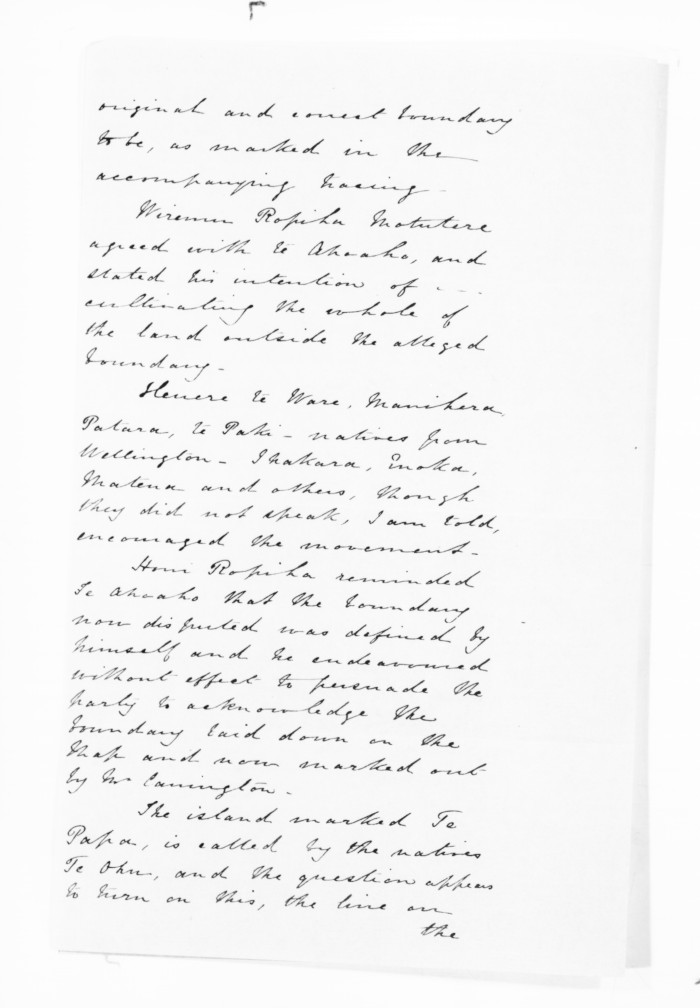 original and correct boundary
to be, as marked in the
accompanying tracing -
Wiremu Ropiha Motutere
agreed with te Ahoaho, and
stated his intention of - - -
cultivating the whole of
the land outside the alleged
boundary -
Henere te Ware, Manihera,
Patara, te Paki - natives from
Wellington - Ihakara, Enoka,
Matena and others, though
they did not speak, I am told,
encouraged the movement -
Honi Ropiha reminded
Te Ahoaho that the boundary
now disputed was defined by
himself and he endeavoured
without effect to persuade the
party to acknowledge the
boundary laid down on the
Map and now marked out
by Mr Carrington -
The island marked Te
Papa, is called by the natives
Te Ohu, and the question appears
to turn on this, the line on
the